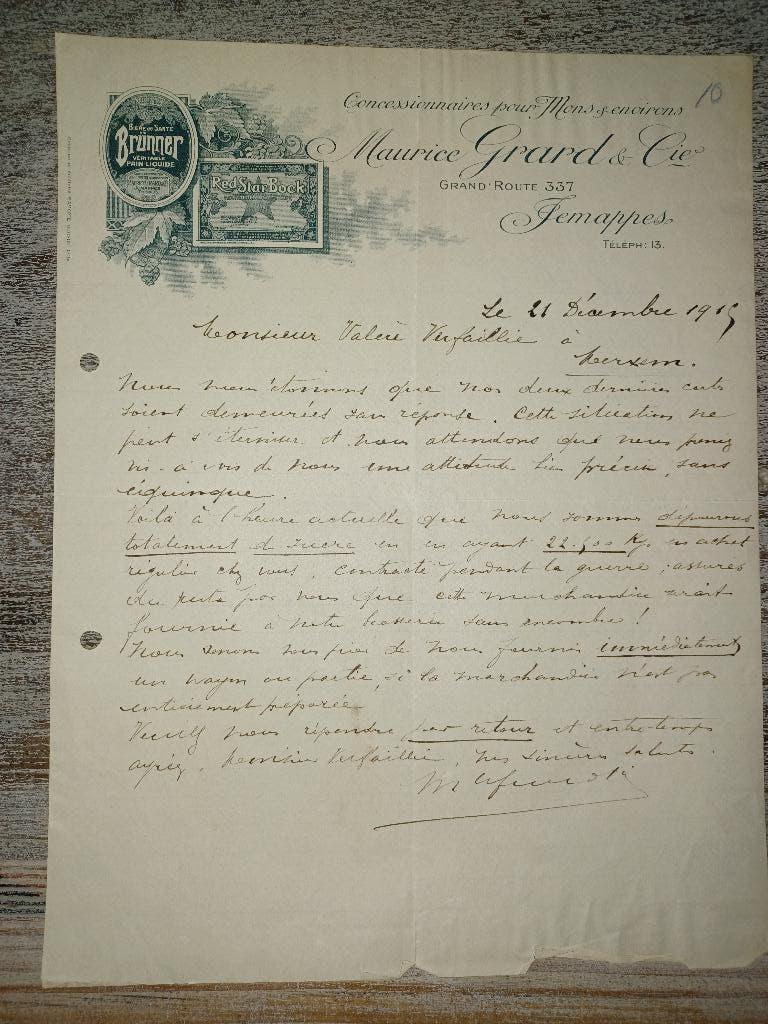 Concessionnaires pour Mons & environs
10
Maurice Grard & Cie
GRAND' ROUTE 337
Jemappes
TÉLÉPH: 13.
BIÈRE DE SANTÉ
Brunner
VÉRITABLE
PAIN LIQUIDE
Red Star Bock
Le 21 Décembre 191
Monsieur Valère Verfaillie à
Merxem.
Nous nous étonnons que nos deux dernières
soient demeurées sans réponse. Cette situation ne
peut s'éterniser et nous attendons que vous preniez
vis-à-vis de nous une attitude bien précise, sans
équivoque.
Voilà à l'heure actuelle que nous sommes dépourvus
totalement de sucre en en ayant 22.500 Kgs en achat
régulier chez vous, contracté pendant la guerre;
du reste par vous que cette marchandise serait
fournie à notre brasserie sans encombre!
Nous venons vous prier de nous fournir immédiatement
un wagon ou partie, si la marchandise n'est pas
entièrement préparée
Veuillez nous répondre par retour et entre-temps
agréez, Monsieur Verfaillie, nos sincères saluts.